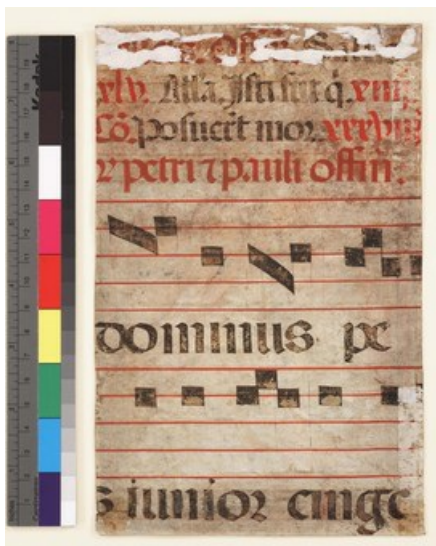 xlv. All'a. Isti sūt q̄. xiiij
Cō. Posuer̄t mor. xxxviij
⁊ petri ⁊ pauli offm̄.
dominus pe
s iunior cinge
Kodak